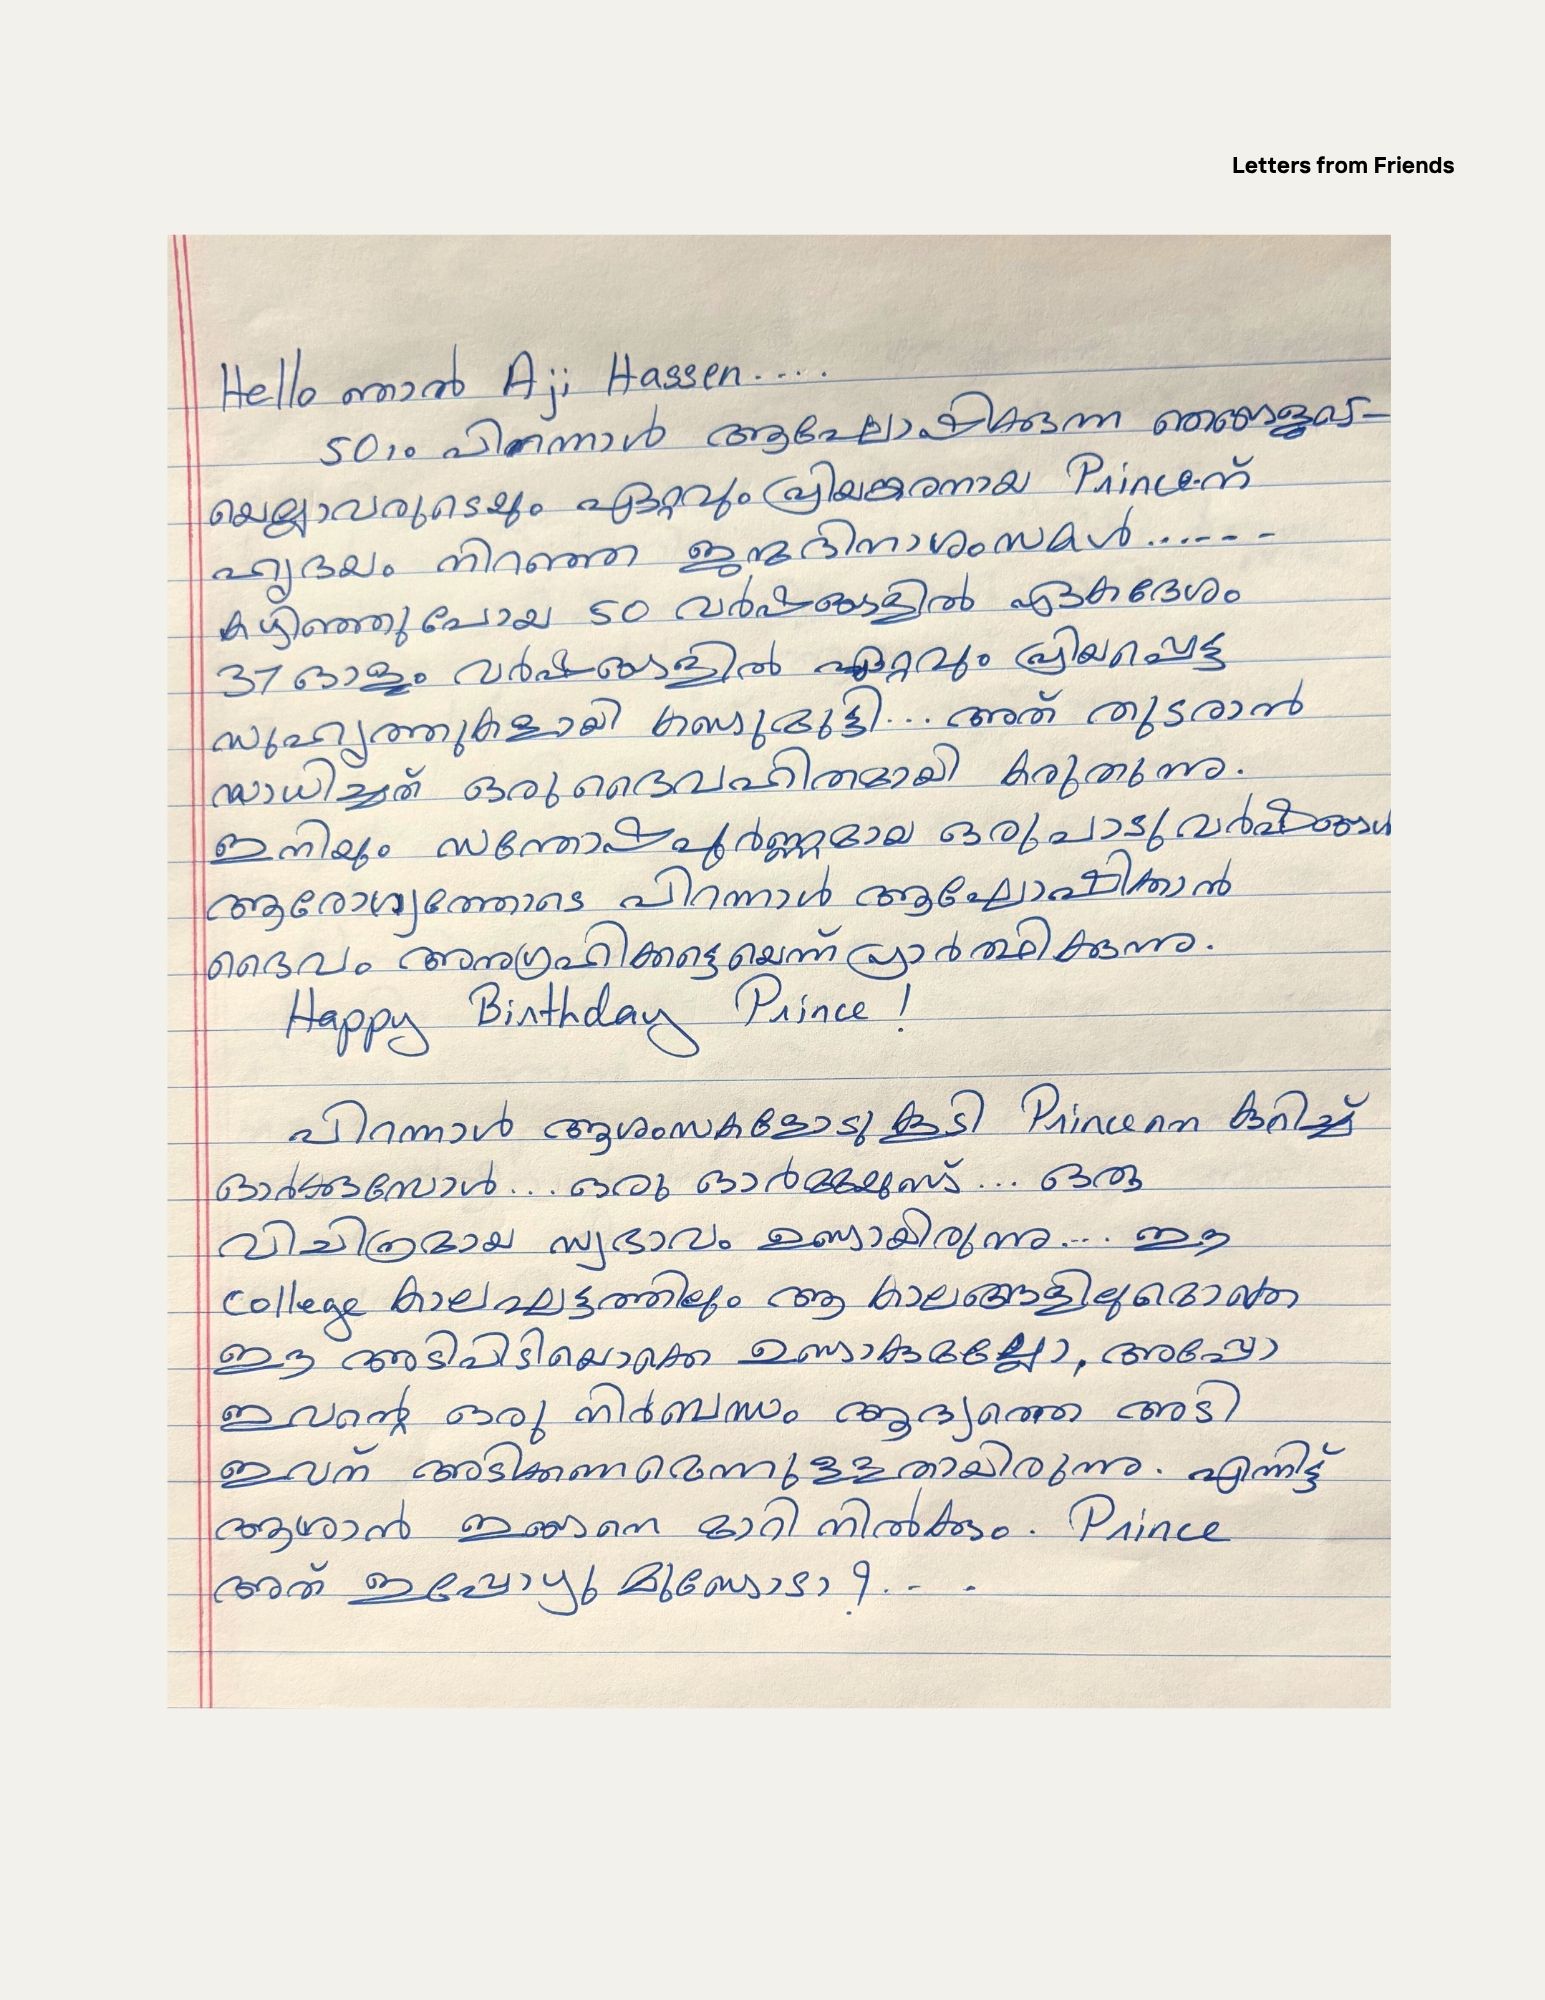 Letters from Friends
Hello ഞാൻ Aji Hassen.....
50ാം പിറന്നാൾ ആഘോഷിക്കുന്ന ഞങ്ങളുടെ-
യെല്ലാവരുടെയും ഏറ്റവും പ്രിയങ്കരനായ Prince-ന്
ഹൃദയം നിറഞ്ഞ ജന്മദിനാശംസകൾ......---
കഴിഞ്ഞുപോയ 50 വർഷങ്ങളിൽ ഏകദേശം
37 ഓളം വർഷങ്ങളിൽ ഏറ്റവും പ്രിയപ്പെട്ട
സുഹൃത്തുകളായി കണ്ടുമുട്ടി... അത് തുടരാൻ
സാധിച്ചത് ഒരു ദൈവഹിതമായി കരുതുന്നു.
ഇനിയും സന്തോഷപൂർണ്ണമായ ഒരുപാടു വർഷങ്ങൾ
ആരോഗ്യത്തോടെ പിറന്നാൾ ആഘോഷിക്കാൻ
ദൈവം അനുഗ്രഹിക്കട്ടെയെന്ന് പ്രാർത്ഥിക്കുന്നു.
Happy Birthday Prince !
പിറന്നാൾ ആശംസകളോടു കൂടി Princeനെ കുറിച്ച്
ഓർക്കുമ്പോൾ... ഒരു ഓർമ്മയുണ്ട്... ഒരു
വിചിത്രമായ സ്വഭാവം ഉണ്ടായിരുന്നു.... ഈ
College കാലഘട്ടത്തിലും ആ കാലങ്ങളിലുമൊക്കെ
ഈ അടിപിടിയൊക്കെ ഉണ്ടാകുമല്ലോ, അപ്പോ
ഇവന്റെ ഒരു നിർബന്ധം ആദ്യത്തെ അടി
ഇവന് അടിക്കണമെന്നുള്ളതായിരുന്നു. എന്നിട്ട്
ആശാൻ ഇങ്ങനെ മാറി നിൽക്കും. Prince
അത് ഇപ്പോഴു മുണ്ടോടാ ?.- -